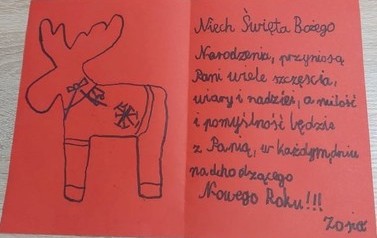 Niech Święta Bożego
Narodzenia, przyniosą
Pani wiele szczęścia,
wiary i nadziei, a miłość
i pomyślność będzie
z Panią, w każdym dniu
nadchodzącego
Nowego Roku!!!